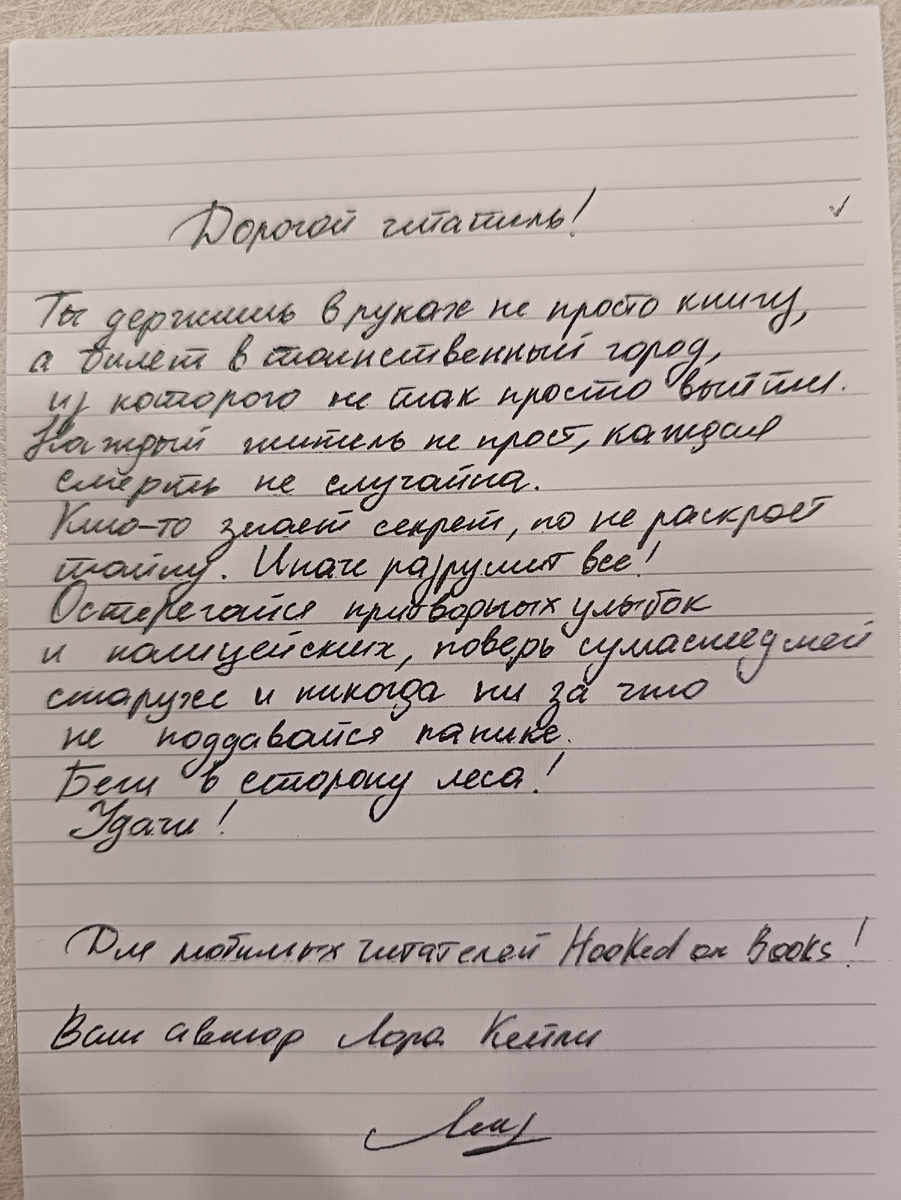 Дорогой читатель!
Ты держишь в руках не просто книгу,
а билет в таинственный город,
из которого не так просто выйти.
Каждый житель не прост, каждая
смерть не случайна.
Кто-то знает секрет, но не раскроет
тайну. Иначе разрушит все!
Остерегайся притворных улыбок
и полицейских, поверь сумасшедшей
старухе и никогда ни за что
не поддавайся панике.
Беги в сторону леса!
Удачи!
Для любимых читателей Hooked on Books!
Ваш автор Лора Кейли